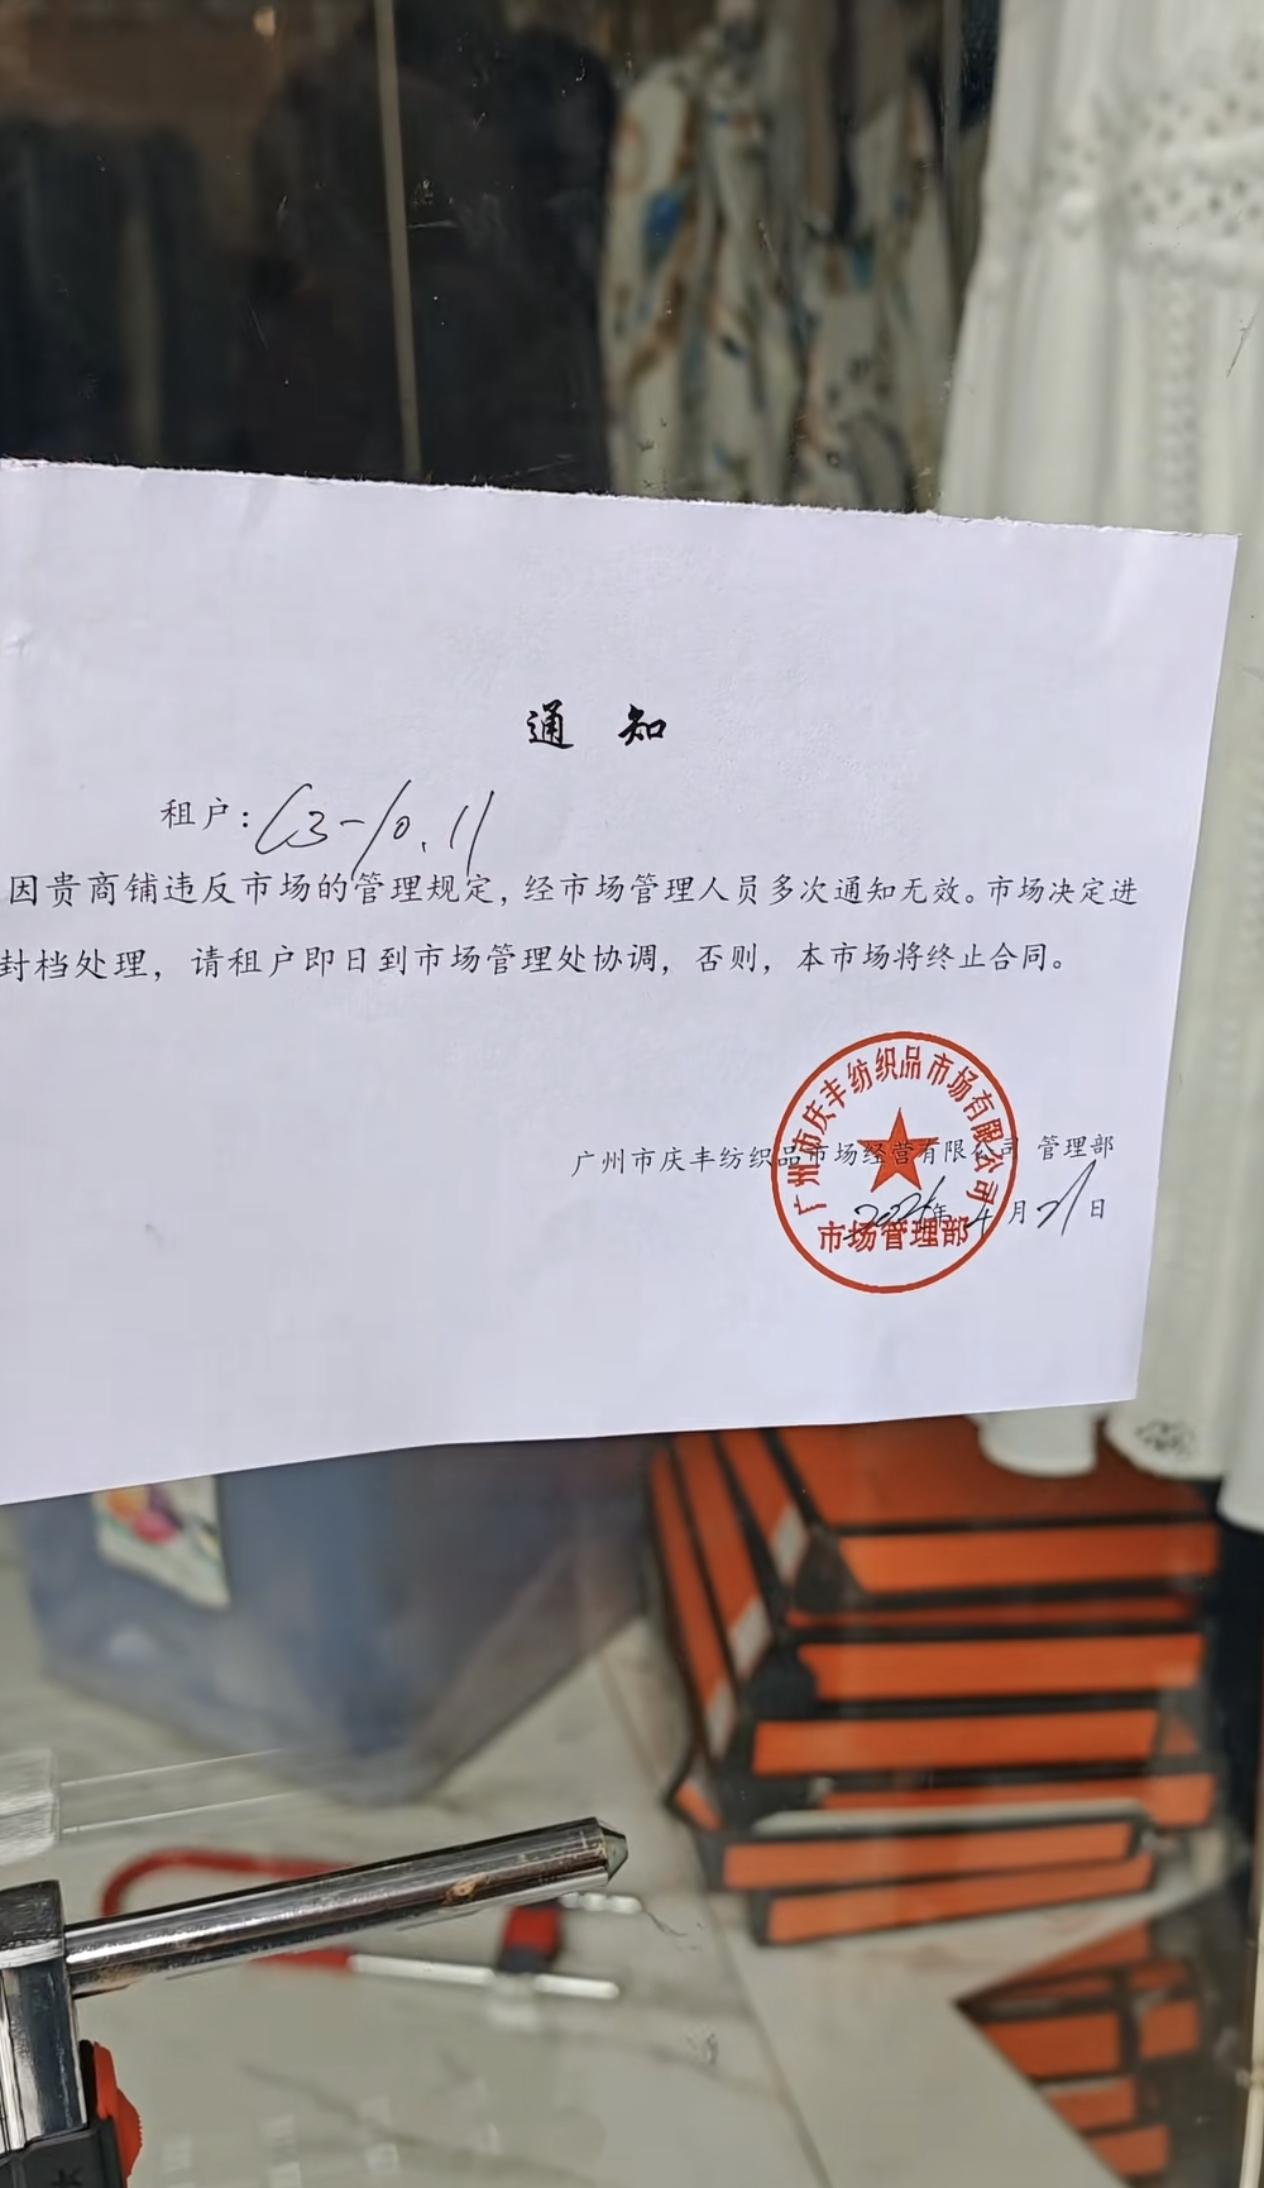 通 知
租户：C3-10.11
因贵商铺违反市场的管理规定，经市场管理人员多次通知无效。市场决定进
封档处理，请租户即日到市场管理处协调，否则，本市场将终止合同。
广州市庆丰纺织品市场经营有限公司 管理部
年4月21日
广州市庆丰纺织品市场有限公司
市场管理部